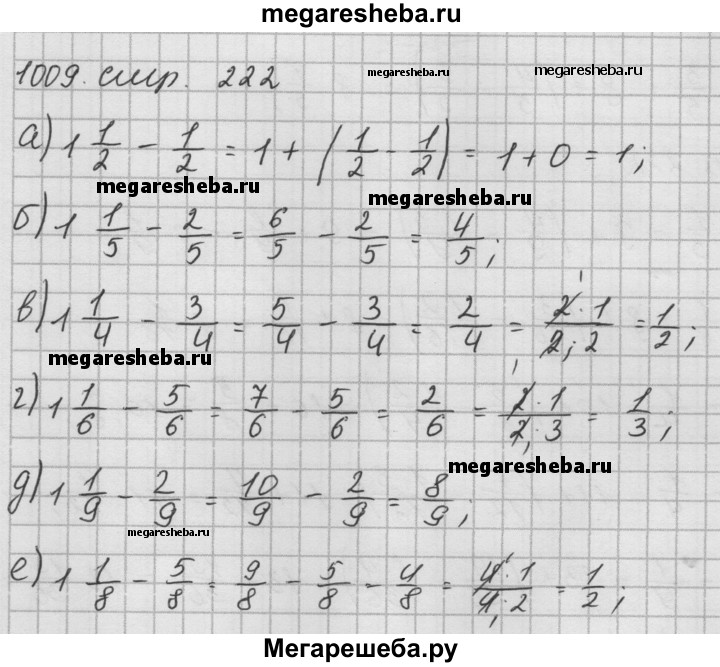 megaresheba.ru
1009. стр. 222 megaresheba.ru megaresheba.ru
а) 1 1/2 - 1/2 = 1 + (1/2 - 1/2) = 1 + 0 = 1;
megaresheba.ru megaresheba.ru
б) 1 1/5 - 2/5 = 6/5 - 2/5 = 4/5;
в) 1 1/4 - 3/4 = 5/4 - 3/4 = 2/4 = 2·1/2·2 = 1/2;
megaresheba.ru
г) 1 1/6 - 5/6 = 7/6 - 5/6 = 2/6 = 2·1/2·3 = 1/3;
megaresheba.ru
д) 1 1/9 - 2/9 = 10/9 - 2/9 = 8/9;
megaresheba.ru
е) 1 1/8 - 5/8 = 9/8 - 5/8 - 4/8 = 4·1/4·2 = 1/2;
Мегарешеба.ру